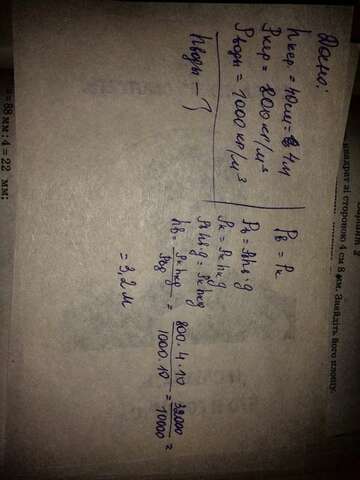 Дано:
hкер. = 40см = 4м
ρкер = 800кг/м³
ρводы = 1000кг/м³
hводы - ?
Pв = Pк
Pв = ρвhвg
Pк = ρкhкg
ρвhвg = ρкhкg
hв = ρкhкg / ρвg = 800·4·10 / 1000·10 = 32000 / 10000 =
= 3,2м
квадрат зі стороною 4 см 8 мм. Знайдіть його площу.
= 88 мм : 4 = 22 мм;